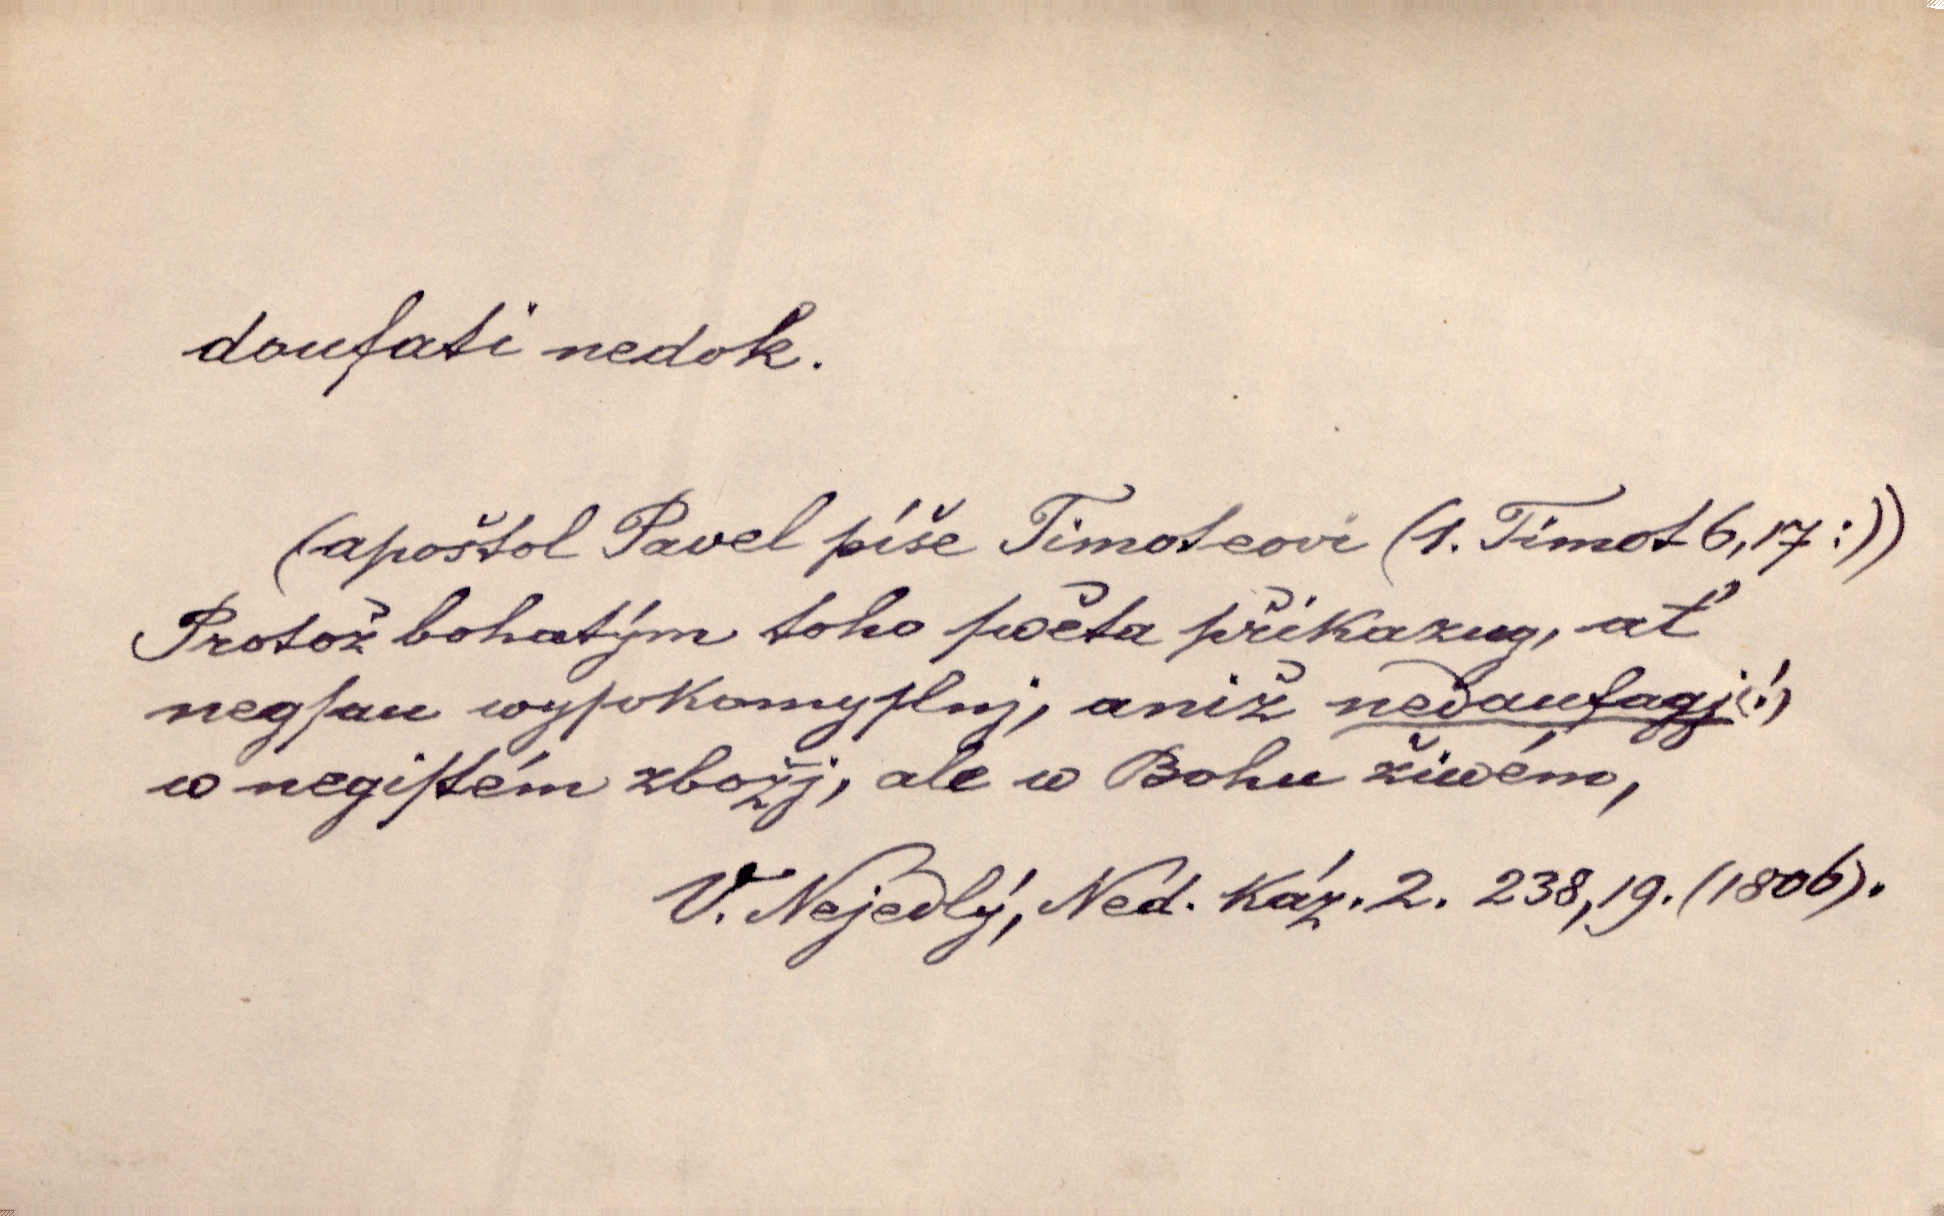 doufati nedok.
(apoštol Pavel píše Timoteovi (1. Timot 6, 17:))
Protož bohatým toho ſwěta přikazug, ať
negſau wyſokomyſlnj, aniž nedaufagj(!)
w negiſtém zbožj, ale w Bohu žiwém,
V. Nejedlý, Ned. Káz. 2. 238, 19. (1806).